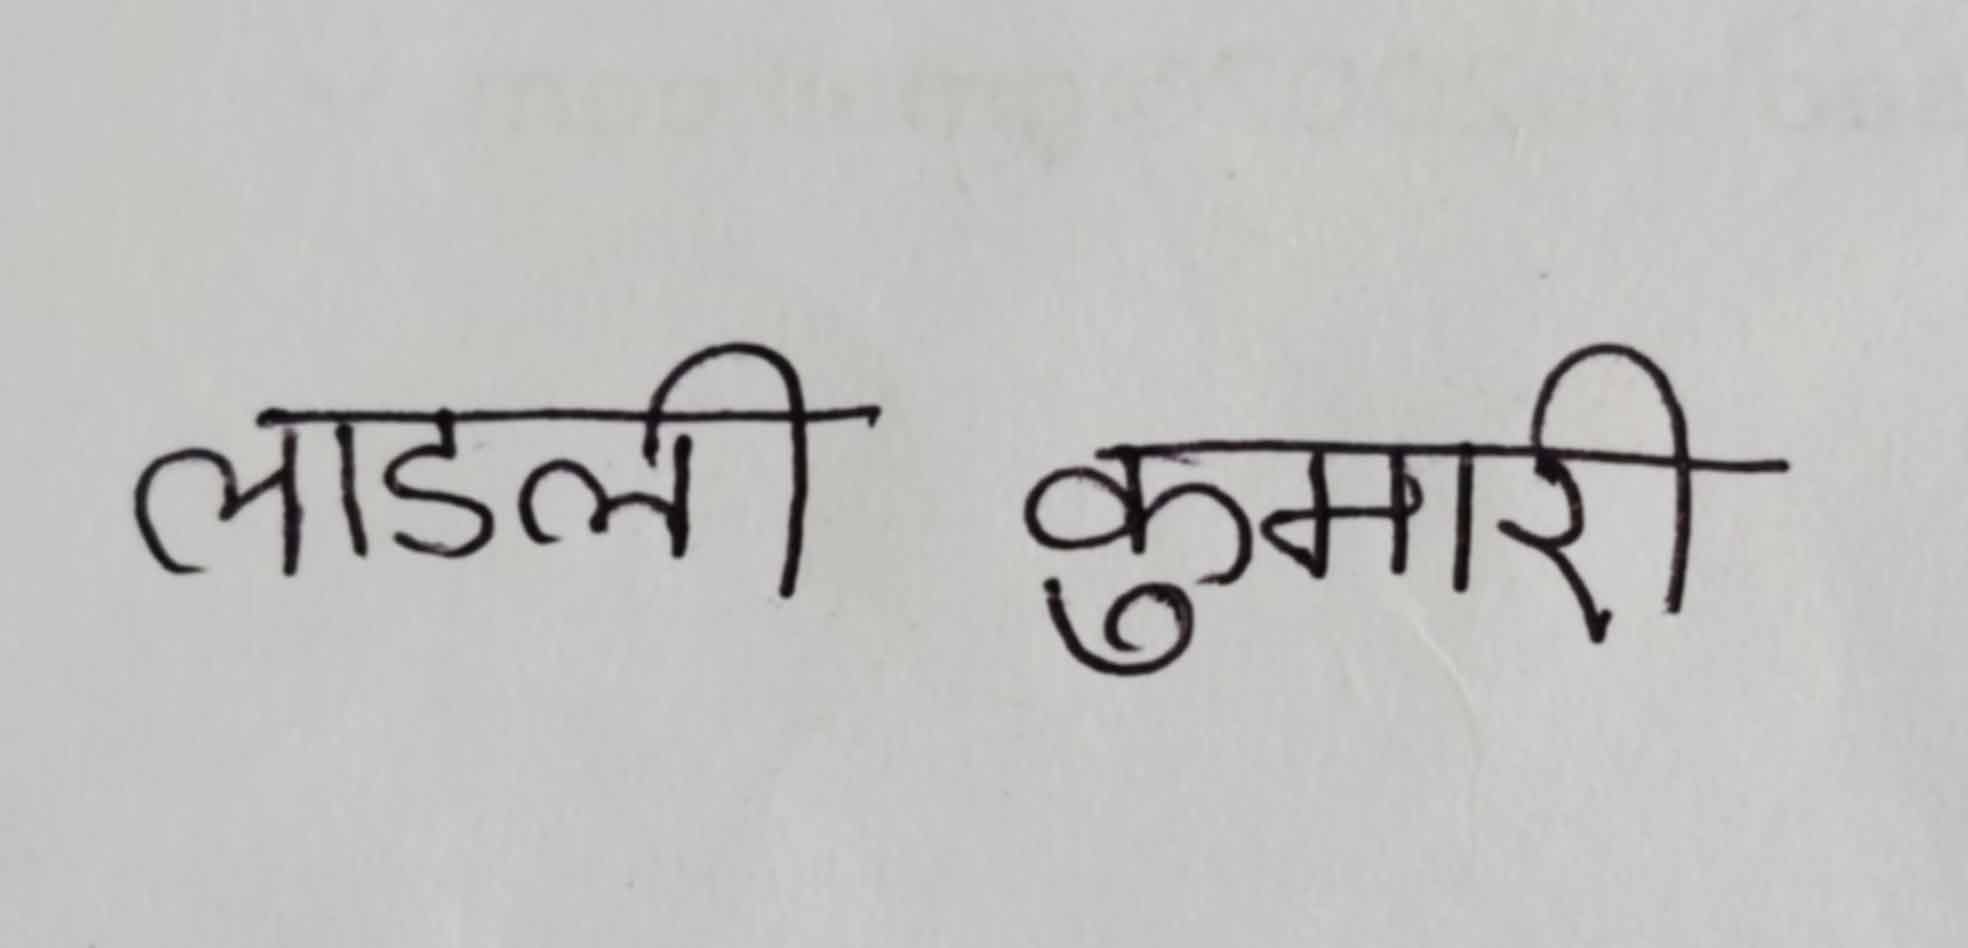 लाडली कुमारी